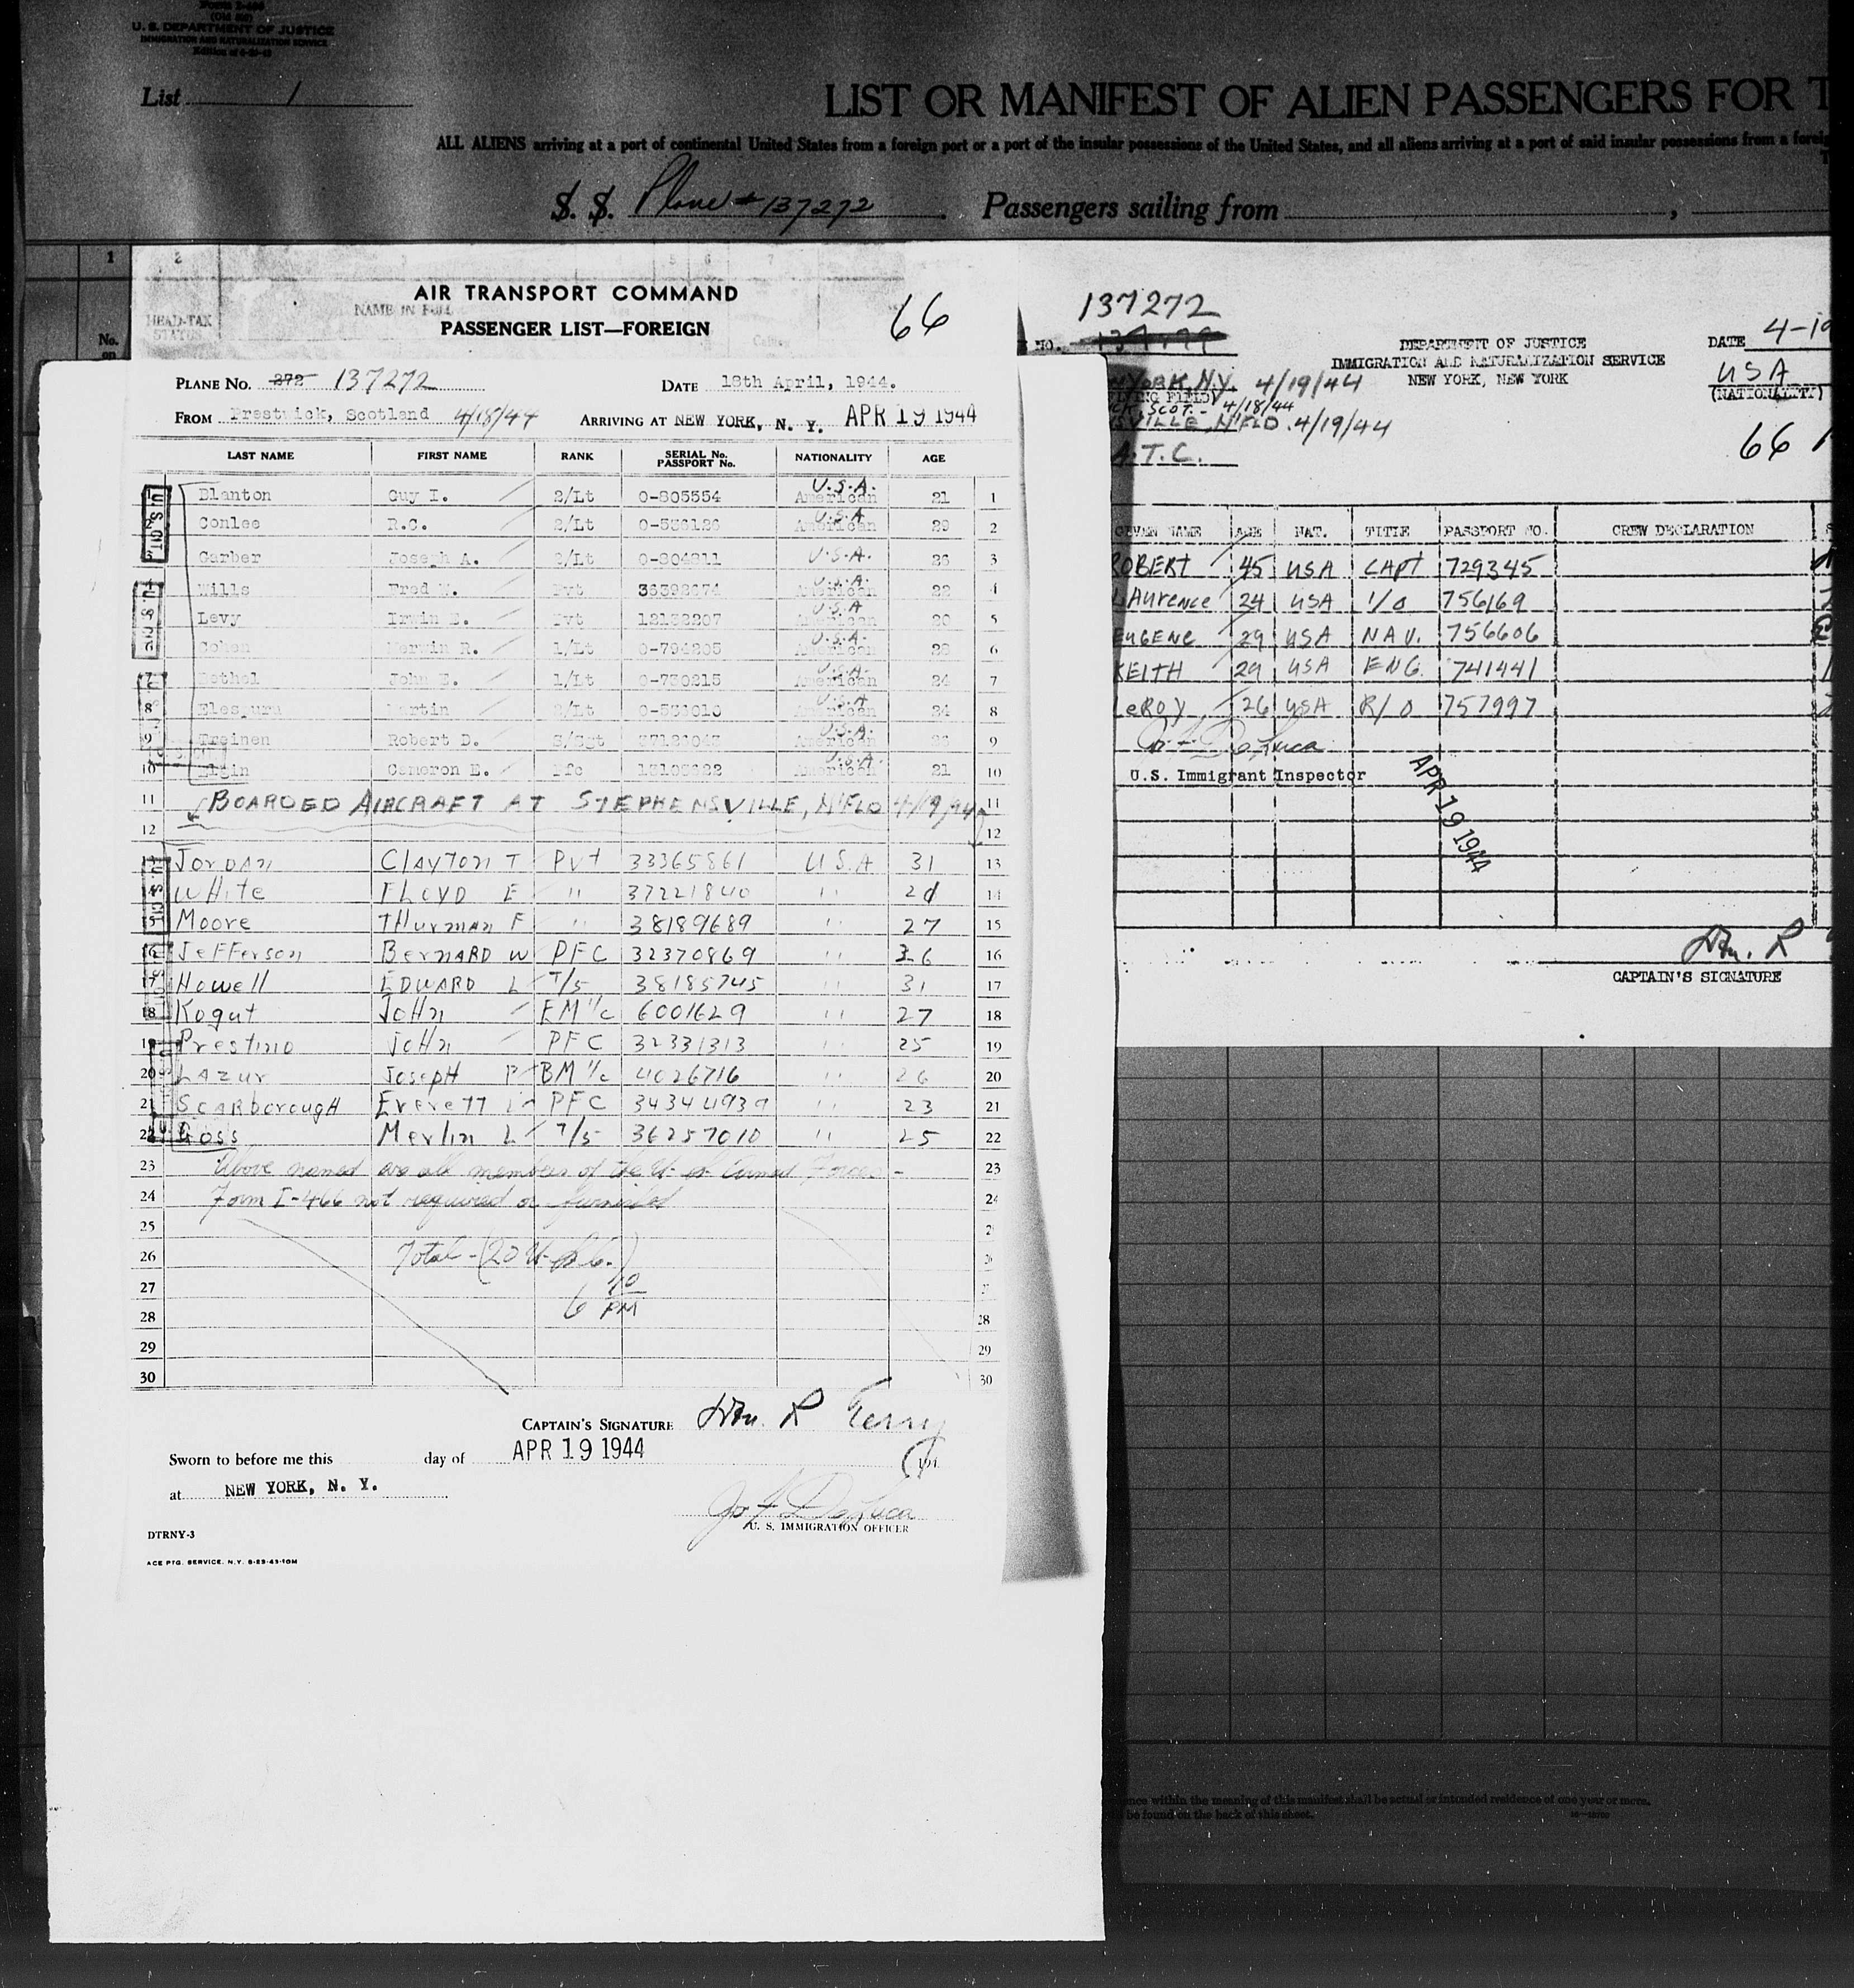 Form I-466
(Old 500)
U. S. DEPARTMENT OF JUSTICE
IMMIGRATION AND NATURALIZATION SERVICE
List 1
LIST OR MANIFEST OF ALIEN PASSENGERS FOR T
ALL ALIENS arriving at a port of continental United States from a foreign port or a port of the insular possessions of the United States, and all aliens arriving at a port of said insular possessions from a foreig
S. S. Plane # 137272 , Passengers sailing from ,
1 2 3 4 5 6 7
HEAD-TAX STATUS
NAME IN FULL
No. on
AIR TRANSPORT COMMAND
PASSENGER LIST—FOREIGN
66
PLANE NO. 272 137272 DATE 18th April, 1944.
FROM Prestwick, Scotland 4/18/44 ARRIVING AT NEW YORK, N. Y. APR 19 1944
LAST NAME FIRST NAME RANK SERIAL No. PASSPORT No. NATIONALITY AGE
1 Blanton Guy I. 2/Lt 0-805554 American U.S.A. 21 1
2 Conlee R.C. 2/Lt 0-536126 American U.S.A. 29 2
3 Garber Joseph A. 2/Lt 0-804811 U.S.A. 26 3
4 Wills Fred Pvt 36392674 American U.S.A. 22 4
5 Levy Irwin E. Pvt 12132207 American U.S.A 20 5
6 Cohen Merwin R. 1/Lt 0-794205 American U.S.A. 28 6
7 Bethel John E. 1/Lt 0-730215 American U.S.A. 24 7
8 Elespuru Martin 2/Lt 0-536010 American U.S.A. 34 8
9 Treinen Robert D. S/Sgt 37126043 American U.S.A. 26 9
10 Elgin Cameron E. Pfc 13103622 American U.S.A. 21 10
11 BOARDED AIRCRAFT AT STEPHENSVILLE, N'FLD 4/19/44 11
12 12
13 Jordan CLAYTON T Pvt 33365861 U.S.A 31 13
14 WHite FLOYD E " 37221840 " 14
15 Moore THurman F " 38189689 " 27 15
16 Jefferson BerNARD W PFC 32370869 " 36 16
17 Howell EDWARD L T/5 38185745 " 31 17
18 Kogut JoHn EM 1/c 6001629 " 27 18
19 Prestino JoHn PFC 32331313 " 25 19
20 LAzur JosepH P BM 1/c 4026716 " 26 20
21 ScArboroughH Everett L PFC 34344939 " 23 21
22 Ross Merlin L T/5 36257010 " 25 22
23 Above named are all members of the U. S. Armed Forces - 23
24 Form I-466 not required or furnished 24
25
26 Total - (20 U.S.C.)
27 10
28 6 PM 28
29 29
30 30
CAPTAIN'S SIGNATURE Wm. R Terry
Sworn to before me this day of APR 19 1944 194
at NEW YORK, N. Y.
Jos F DeLuca
U. S. IMMIGRATION OFFICER
DTRNY-3
ACE PTG. SERVICE. N.Y. 8-23-43-10M
137272
NO. DEPARTMENT OF JUSTICE DATE 4-19
IMMIGRATION AND NATURALIZATION SERVICE
NEW YORK, NEW YORK
YORK, N.Y. 4/19/44 USA
(NATIONALITY)
CK, SCOT. - 4/18/44
SVILLE, N'FLD. 4/19/44
A.T.C. 66
GIVEN NAME AGE NAT. TITLE PASSPORT NO. CREW DECLARATION
ROBERT 45 USA CAPT 729345
LAurence 24 USA 1/O 756169
EUGENE 29 USA NAV. 756606
KEITH 29 USA ENG. 741441
LeROY 26 USA R/O 757997
Jos F DeLuca
U.S. Immigrant Inspector
APR 19 1944
Wm. R
CAPTAIN'S SIGNATURE
nce within the meaning of this manifest shall be actual or intended residence of one year or more.
be found on the back of this sheet.